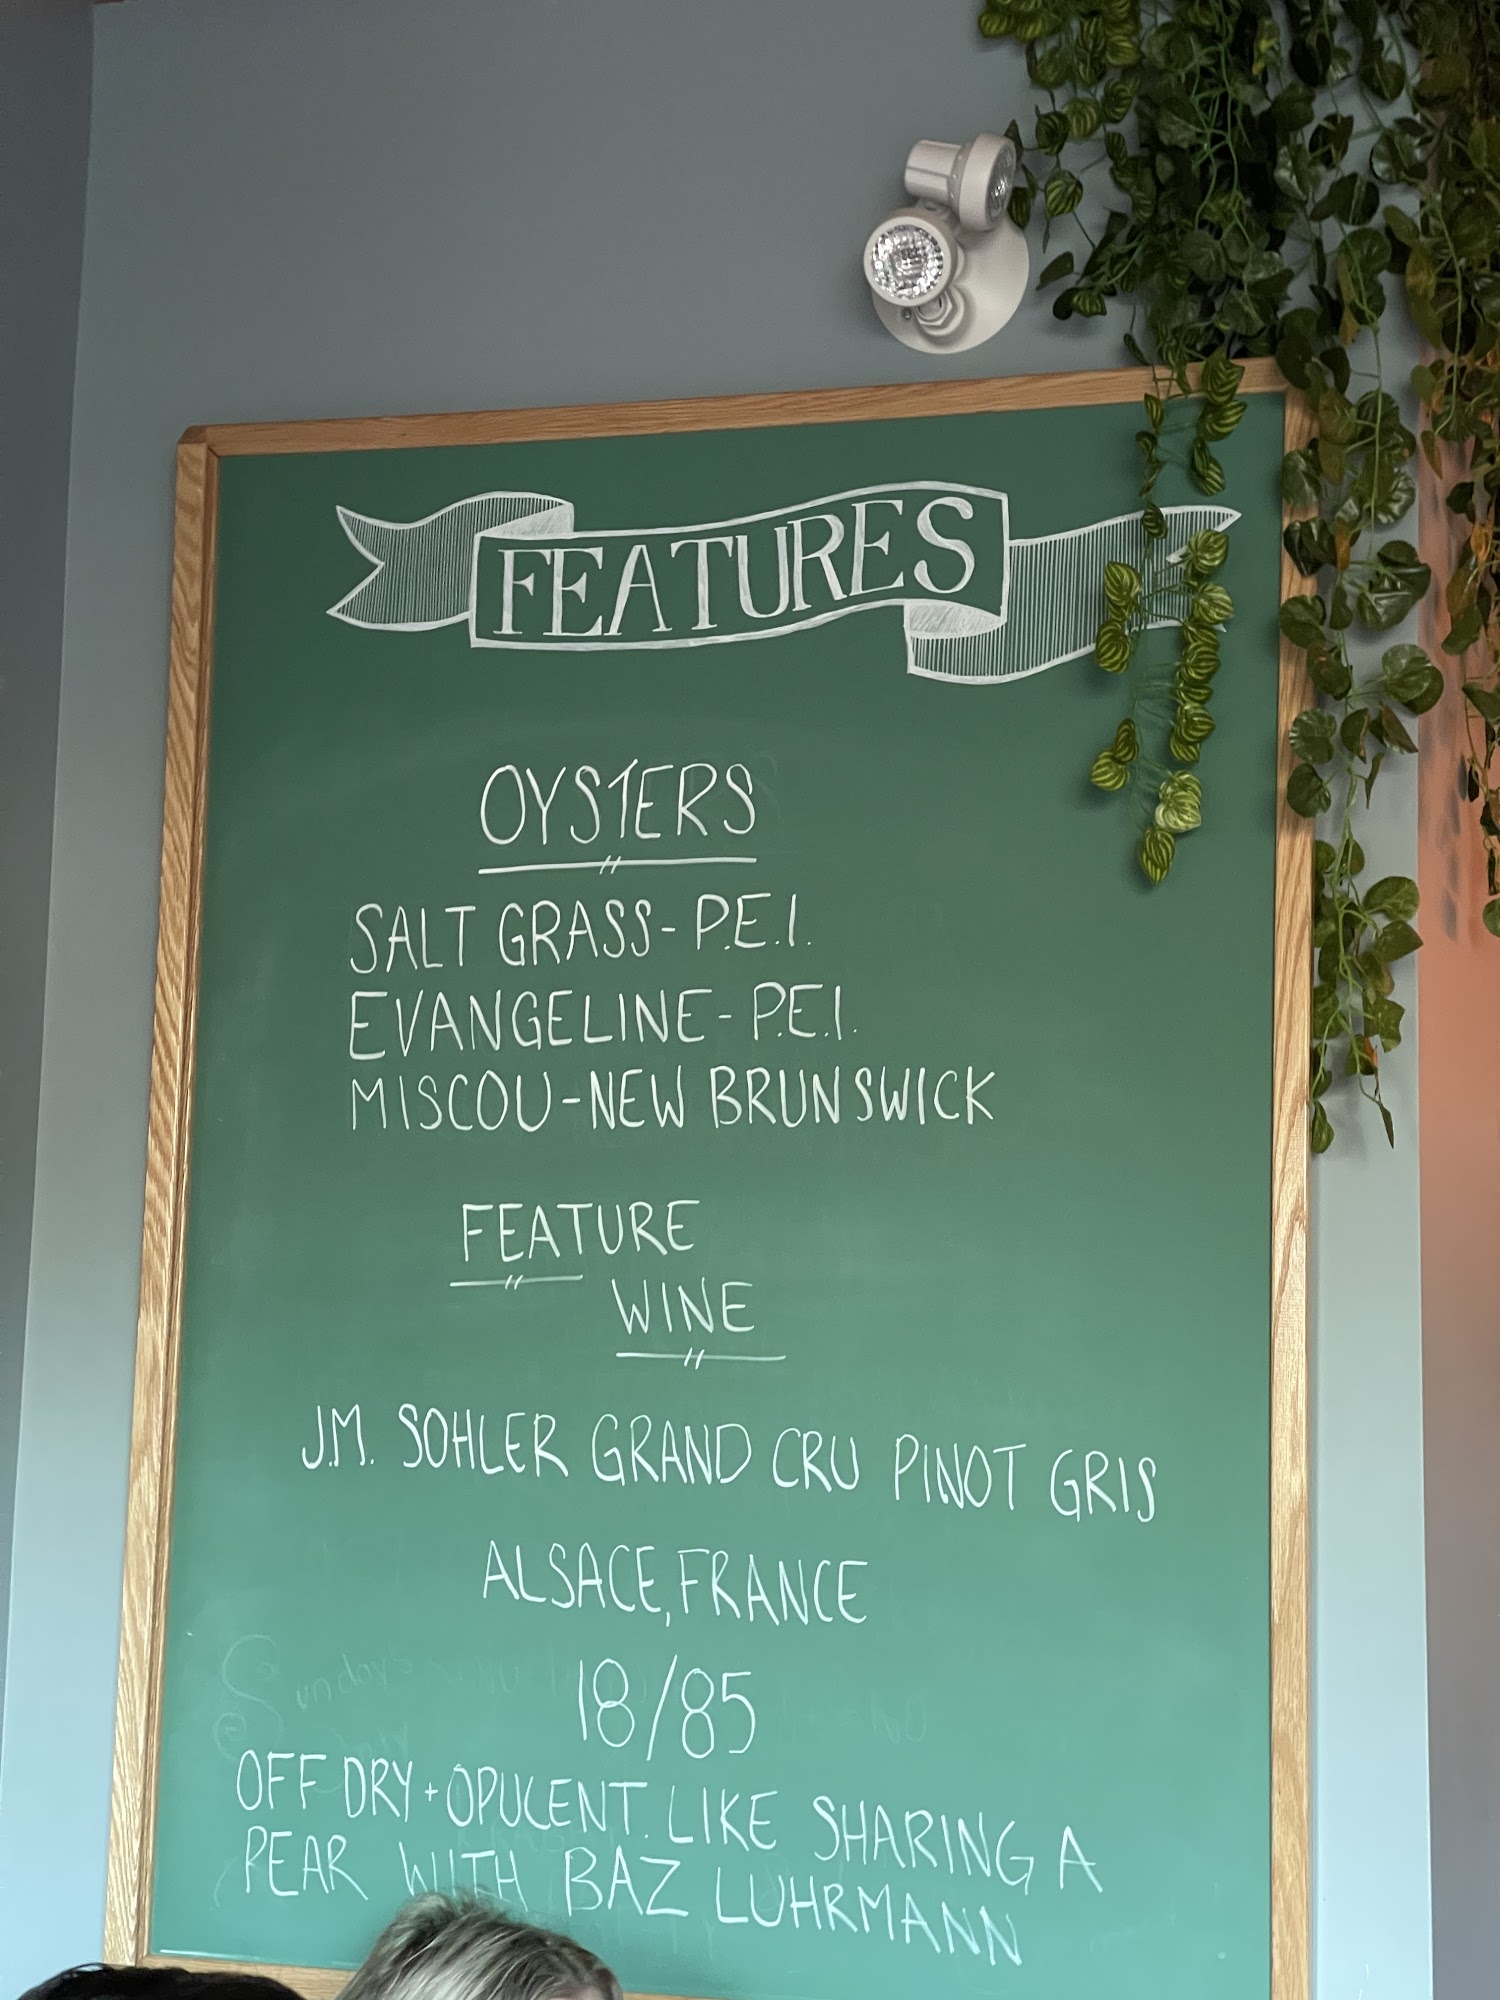 FEATURES
OYSTERS
SALT GRASS - P.E.I.
EVANGELINE - P.E.I.
MISCOU - NEW BRUNSWICK
FEATURE
WINE
J.M. SOHLER GRAND CRU PINOT GRIS
ALSACE, FRANCE
18/85
OFF DRY + OPULENT. LIKE SHARING A
PEAR WITH BAZ LUHRMANN